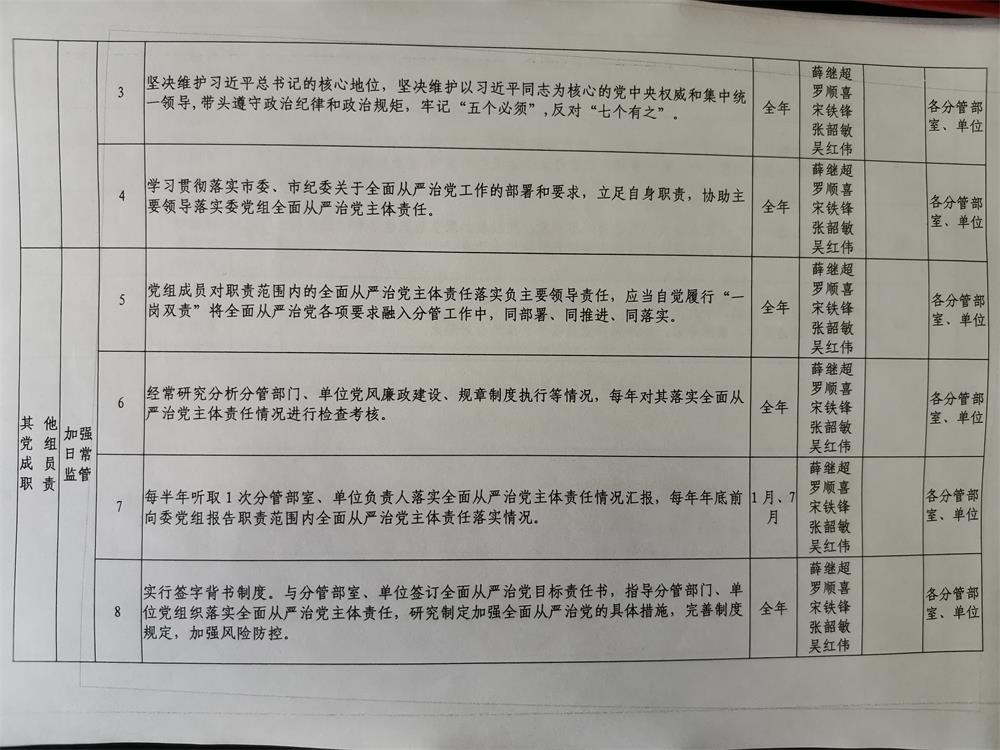 3
坚决维护习近平总书记的核心地位，坚决维护以习近平同志为核心的党中央权威和集中统
一领导,带头遵守政治纪律和政治规矩，牢记“五个必须”,反对“七个有之”。
全年
薛继超
罗顺喜
宋铁锋
张韶敏
吴红伟
各分管部
室、单位
4
学习贯彻落实市委、市纪委关于全面从严治党工作的部署和要求，立足自身职责，协助主
要领导落实委党组全面从严治党主体责任。
全年
薛继超
罗顺喜
宋铁锋
张韶敏
吴红伟
各分管部
室、单位
其他
党组
成员
职责
加强
日常
监管
5
党组成员对职责范围内的全面从严治党主体责任落实负主要领导责任，应当自觉履行“一
岗双责”将全面从严治党各项要求融入分管工作中，同部署、同推进、同落实。
全年
薛继超
罗顺喜
宋铁锋
张韶敏
吴红伟
各分管部
室、单位
6
经常研究分析分管部门、单位党风廉政建设、规章制度执行等情况，每年对其落实全面从
严治党主体责任情况进行检查考核。
全年
薛继超
罗顺喜
宋铁锋
张韶敏
吴红伟
各分管部
室、单位
7
每半年听取1次分管部室、单位负责人落实全面从严治党主体责任情况汇报，每年年底前
向委党组报告职责范围内全面从严治党主体责任落实情况。
1月、7
月
薛继超
罗顺喜
宋铁锋
张韶敏
吴红伟
各分管部
室、单位
8
实行签字背书制度。与分管部室、单位签订全面从严治党目标责任书，指导分管部门、单
位党组织落实全面从严治党主体责任，研究制定加强全面从严治党的具体措施，完善制度
规定，加强风险防控。
全年
薛继超
罗顺喜
宋铁锋
张韶敏
吴红伟
各分管部
室、单位